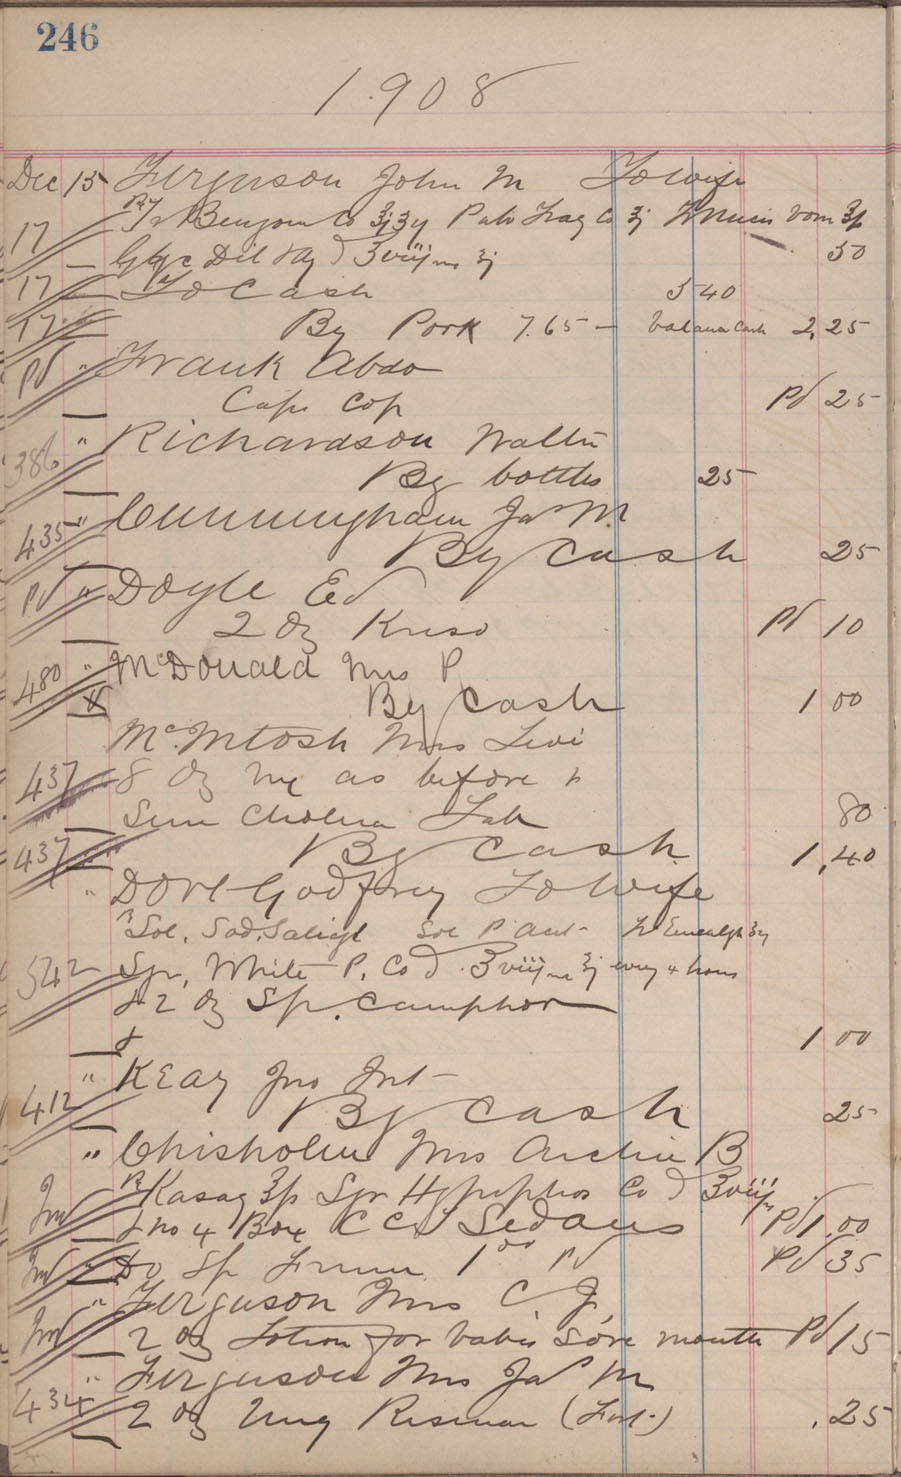 246
1908
Dec 15 Ferguson John M To wife
Tr Benzoin Co
17 50
17 To Cash 5 40
17 By Pork 7.65 - balance Cash 2,25
Pd " Frank Abdo
Caps Cop Pd 25
386 " Richardson Walter
By bottles 25
435 " Cunningham Jas M.
By Cash 25
Pd " Doyle Ed
2 oz Kreso Pd 10
480 " McDonald Mrs P
By Cash 1 00
Mc.Intosh Mrs Levi
437 8 oz as before
Sun Cholera Tab 80
437 " By Cash 1,40
" Dove Godfrey To Wife
Sol. Sod. Salicyl Sol P
542 Syr. White P. Co every 4 hours
& 2 oz Sp. Camphor
& 1 00
412 " Keay Jno Int
By Cash 25
" Chisholm Mrs Archie B
Kasag Syr Hypophos Co
& no 4 Box K C S Sedans Pd 1.00
Do 1 00 Pd Pd 35
" Ferguson Mrs C. J.
2 oz Lotion for babies sore mouth Pd 15
434 " Ferguson Mrs Jas M
2 oz Ung Resinar (Fort.) .25